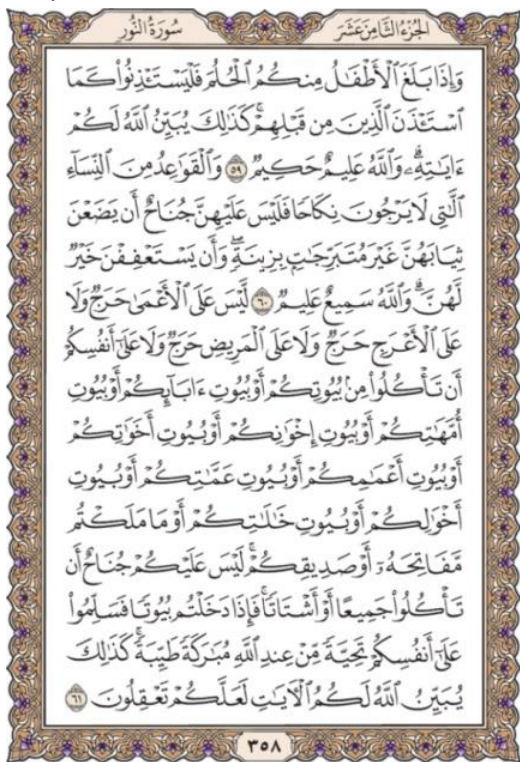 سُورَةُ النُّور
الجُزْءُ الثَّامِنَ عَشَرَ
وَإِذَا بَلَغَ ٱلْأَطْفَٰلُ مِنكُمُ ٱلْحُلُمَ فَلْيَسْتَـْٔذِنُوا۟ كَمَا
ٱسْتَـْٔذَنَ ٱلَّذِينَ مِن قَبْلِهِمْ ۚ كَذَٰلِكَ يُبَيِّنُ ٱللَّهُ لَكُمْ
ءَايَٰتِهِۦ ۗ وَٱللَّهُ عَلِيمٌ حَكِيمٌ ٥٩ وَٱلْقَوَٰعِدُ مِنَ ٱلنِّسَآءِ
ٱلَّٰتِى لَا يَرْجُونَ نِكَاحًا فَلَيْسَ عَلَيْهِنَّ جُنَاحٌ أَن يَضَعْنَ
ثِيَابَهُنَّ غَيْرَ مُتَبَرِّجَٰتٍۭ بِزِينَةٍ ۖ وَأَن يَسْتَعْفِفْنَ خَيْرٌ
لَّهُنَّ ۗ وَٱللَّهُ سَمِيعٌ عَلِيمٌ ٦٠ لَّيْسَ عَلَى ٱلْأَعْمَىٰ حَرَجٌ وَلَا
عَلَى ٱلْأَعْرَجِ حَرَجٌ وَلَا عَلَى ٱلْمَرِيضِ حَرَجٌ وَلَا عَلَىٰٓ أَنفُسِكُمْ
أَن تَأْكُلُوا۟ مِنۢ بُيُوتِكُمْ أَوْ بُيُوتِ ءَابَآئِكُمْ أَوْ بُيُوتِ
أُمَّهَٰتِكُمْ أَوْ بُيُوتِ إِخْوَٰنِكُمْ أَوْ بُيُوتِ أَخَوَٰتِكُمْ
أَوْ بُيُوتِ أَعْمَٰمِكُمْ أَوْ بُيُوتِ عَمَّٰتِكُمْ أَوْ بُيُوتِ
أَخْوَٰلِكُمْ أَوْ بُيُوتِ خَٰلَٰتِكُمْ أَوْ مَا مَلَكْتُم
مَّفَاتِحَهُۥٓ أَوْ صَدِيقِكُمْ ۚ لَيْسَ عَلَيْكُمْ جُنَاحٌ أَن
تَأْكُلُوا۟ جَمِيعًا أَوْ أَشْتَاتًا ۚ فَإِذَا دَخَلْتُم بُيُوتًا فَسَلِّمُوا۟
عَلَىٰٓ أَنفُسِكُمْ تَحِيَّةً مِّنْ عِندِ ٱللَّهِ مُبَٰرَكَةً طَيِّبَةً ۚ كَذَٰلِكَ
يُبَيِّنُ ٱللَّهُ لَكُمُ ٱلْءَايَٰتِ لَعَلَّكُمْ تَعْقِلُونَ ٦١
٣٥٨